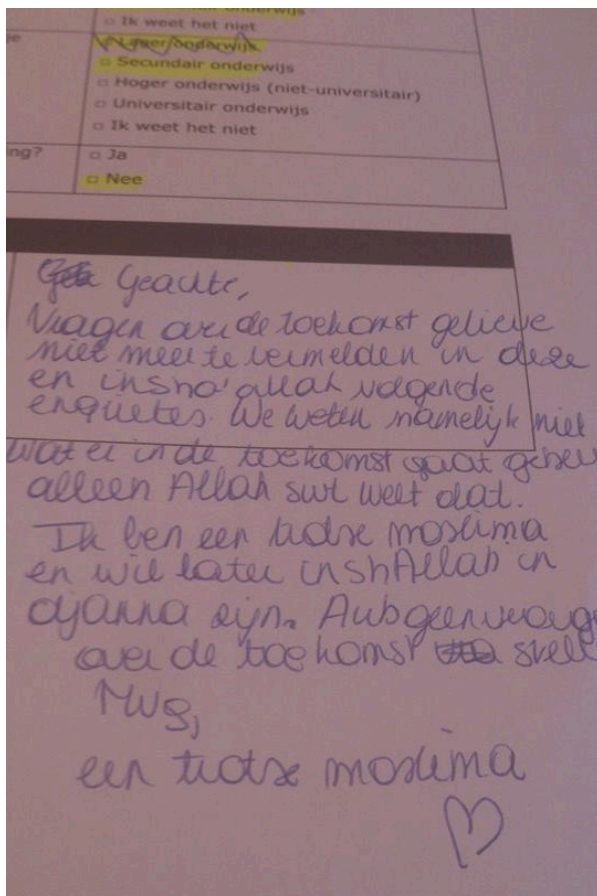 □ Ik weet het niet
Lager onderwijs
□ Secundair onderwijs
□ Hoger onderwijs (niet-universitair)
□ Universitair onderwijs
□ Ik weet het niet
ng? □ Ja
□ Nee
Geachte,
Vragen over de toekomst gelieve
niet meer te vermelden in deze
en insha'allah volgende
enquêtes. We weten namelijk niet
wat er in de toekomst gaat gebeu
alleen Allah swt weet dat.
Ik ben een trotse moslima
en wil later inshAllah in
djanna zijn. Aub geen vrage
over de toekomst stell
Mvg,
een trotse moslima